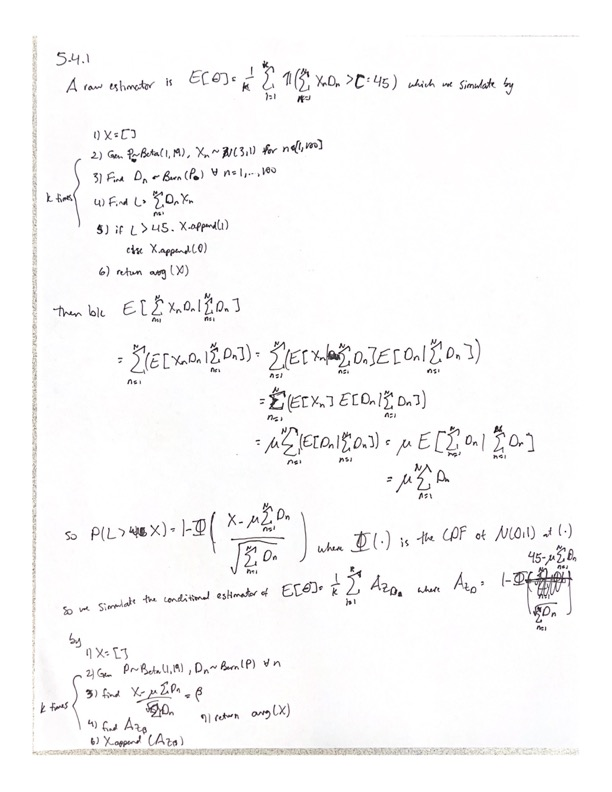 5.4.1
A raw estimator is E[θ] = 1/k Σ_{i=1}^{k} 𝟙(Σ_{n=1}^{N} XnDn > C=45) which we simulate by
1) X=[]
2) Gen P~Beta(1,19), Xn ~ N(3,1) for n∈[1,100]
3) Find Dn ~ Bern(P) ∀ n=1,..,100
k times
4) Find L = Σ_{n=1}^{N} DnXn
5) if L > 45. X.append(1)
else X.append(0)
6) return avg(X)
then b/c E[Σ_{n=1}^{N} XnDn | Σ_{n=1}^{N} Dn]
= Σ_{n=1}^{N} (E[XnDn | Σ_{n=1}^{N} Dn]) = Σ_{n=1}^{N} (E[Xn | Σ_{n=1}^{N} Dn] E[Dn | Σ_{n=1}^{N} Dn])
= Σ_{n=1}^{N} (E[Xn] E[Dn | Σ_{n=1}^{N} Dn])
= μ Σ_{n=1}^{N} (E[Dn | Σ_{n=1}^{N} Dn]) = μ E[Σ_{n=1}^{N} Dn | Σ_{n=1}^{N} Dn]
= μ Σ_{n=1}^{N} Dn
So P(L > X) = 1-Φ( (X - μ Σ_{n=1}^{N} Dn) / √(Σ_{n=1}^{N} Dn) ) where Φ(.) is the CDF of N(0,1) at (.)
So we simulate the conditional estimator of E[θ] = 1/k Σ_{i=1}^{k} A_{ZD} where A_{ZD} = 1-Φ( (45 - μ Σ_{n=1}^{N} Dn) / √(Σ_{n=1}^{N} Dn) )
by
1) X=[]
2) Gen P~Beta(1,19), Dn~Bern(P) ∀ n
k times
3) find (X - μ ΣDn) / √ΣDn = β
4) find A_{Zβ}
6) X.append(A_{Zβ})
7) return avg(X)